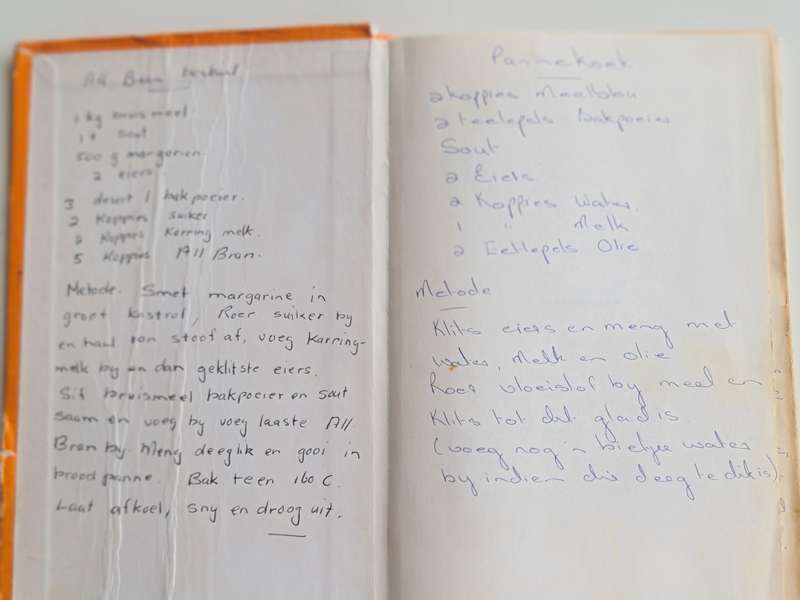 All Bran beskuit
1 kg bruismeel
1 t sout
500 g margarien
2 eiers
3 desert l bakpoeier.
2 Koppies suiker
2 Koppies Karring melk.
5 Koppies All Bran.
Metode. Smelt margarine in
groot kastrol, Roer suiker by
en haal van stoof af, voeg Karring-
melk by en dan geklitste eiers.
Sif bruismeel bakpoeier en sout
saam en voeg by voeg laaste All
Bran by. Meng deeglik en gooi in
brood panne. Bak teen 160 C.
Laat afkoel, sny en droog uit.
Pannekoek
2 koppies Meelblom
2 teelepels Bakpoeier
Sout
2 Eiers
2 Koppies Water.
1 " Melk
2 Eetlepels Olie
Metode
Klits eiers en meng met
water, Melk en olie
Roer vloeistof by meel en
Klits tot dit glad is.
(voeg nog 'n bietjie water
by indien die deeg te dik is)